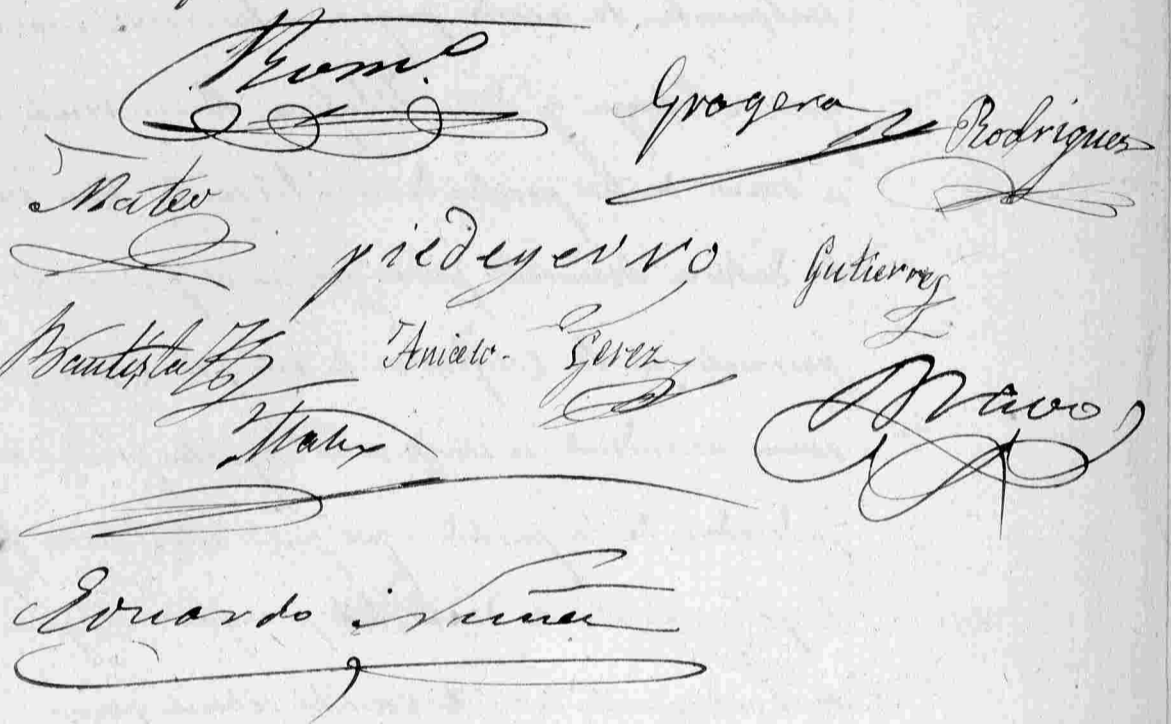 Rom.º Grogera Rodrigues
Mateo
piedeyerro Gutierrez
Bautista Aniceto. Gerez
Bravo
Eduardo Nuñez